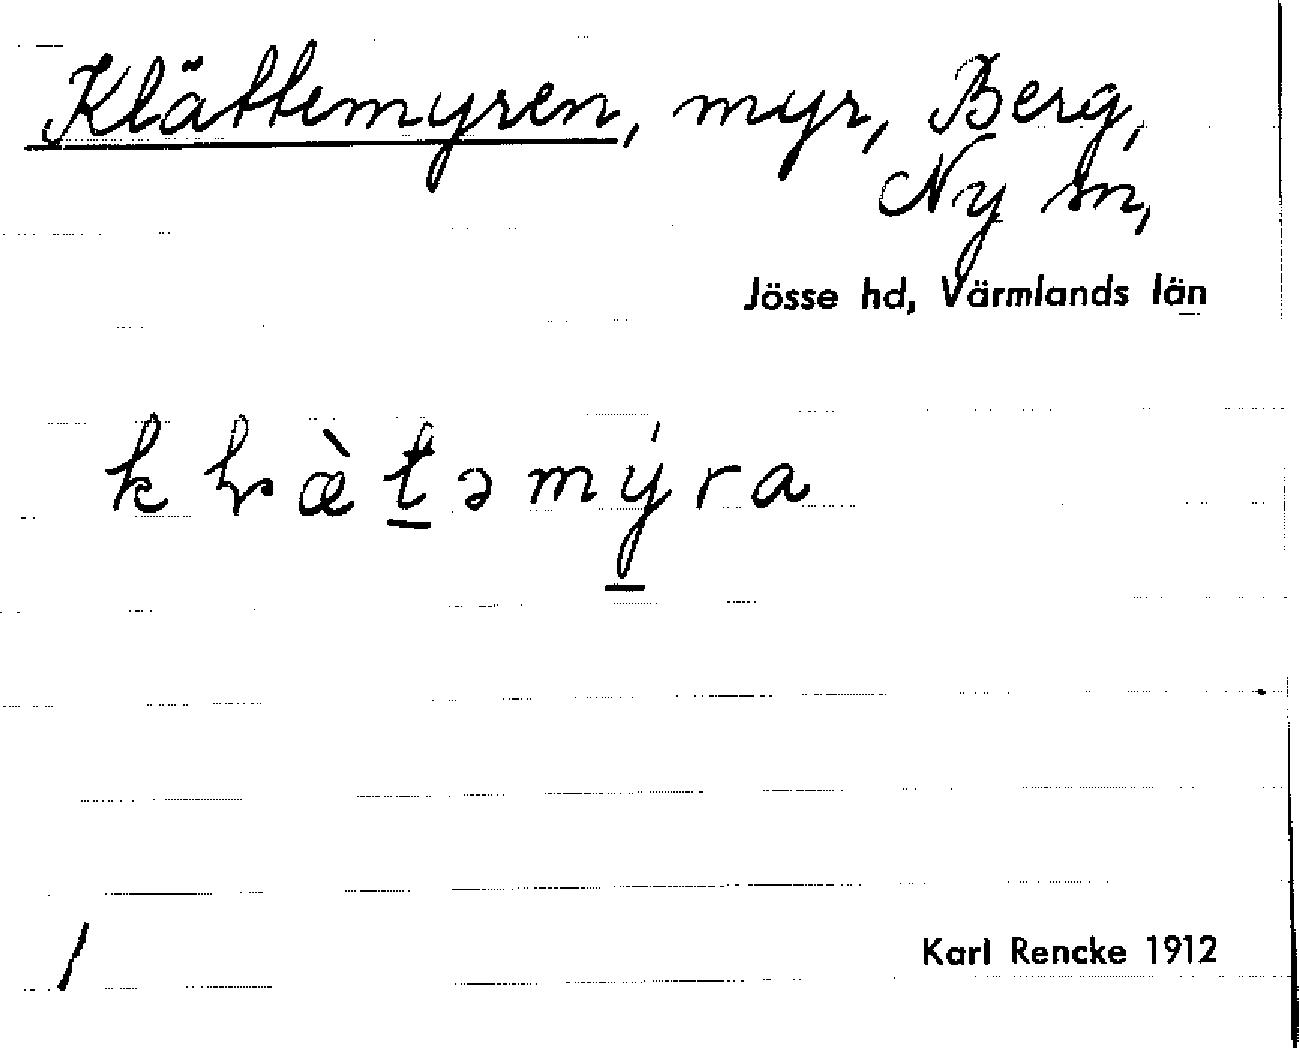 Klättemyren, myr, Berg,
Ny sn,
Jösse hd, Värmlands län
k ɽ æ̀ t̲ ə m ý̲ r a
/
Karl Rencke 1912